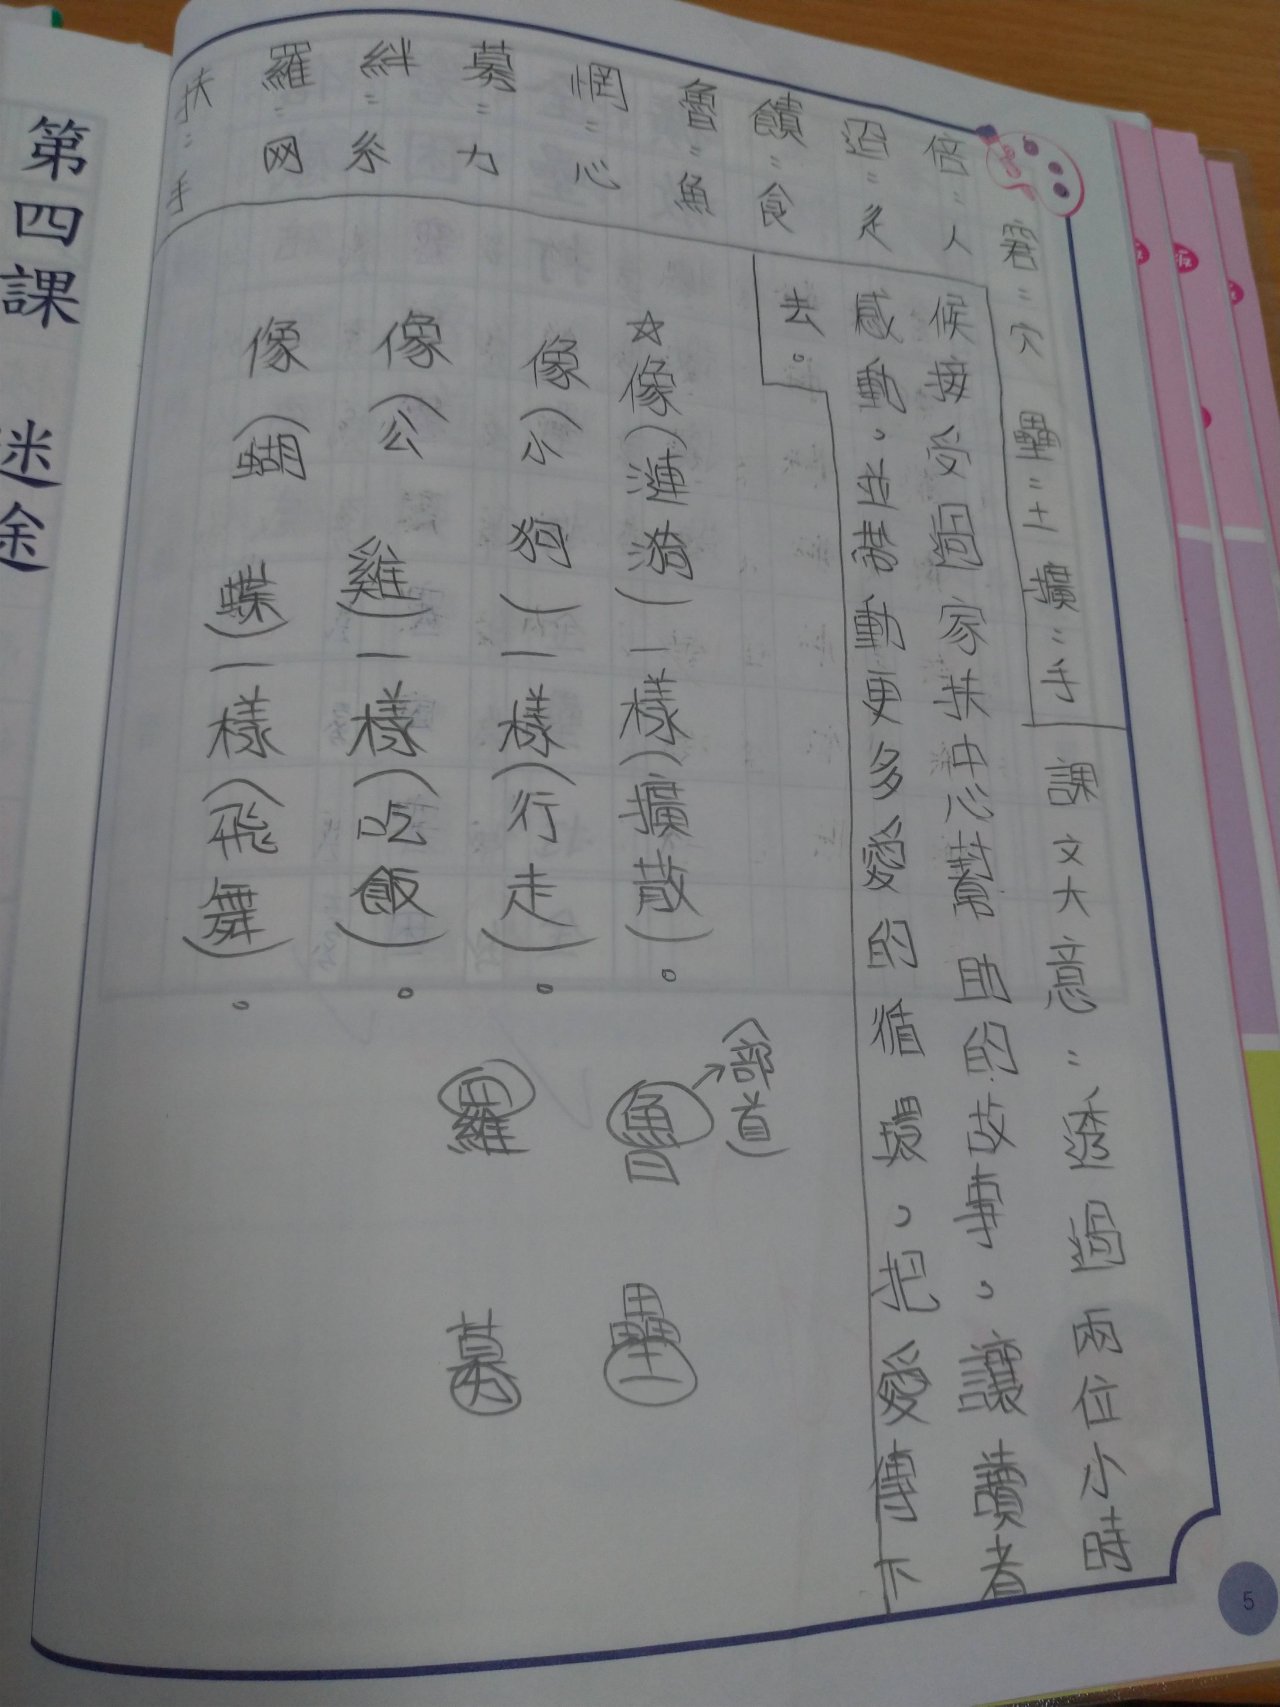 窘：穴 壘：土 擴：手
倍：人
迢：辵
饋：食
魯：魚
惘：心
募：力
絆：糸
羅：网
扶：手
課文大意：透過兩位小時
候接受過家扶中心幫助的故事，讓讀者
感動，並帶動更多愛的循環，把愛傳下
去。
☆像(漣漪)一樣(擴散)。
像(小狗)一樣(行走)。
像(公雞)一樣(吃飯)。
像(蝴蝶)一樣(飛舞)。
(部首)
魯 壘
羅 募
第四課 迷途
5